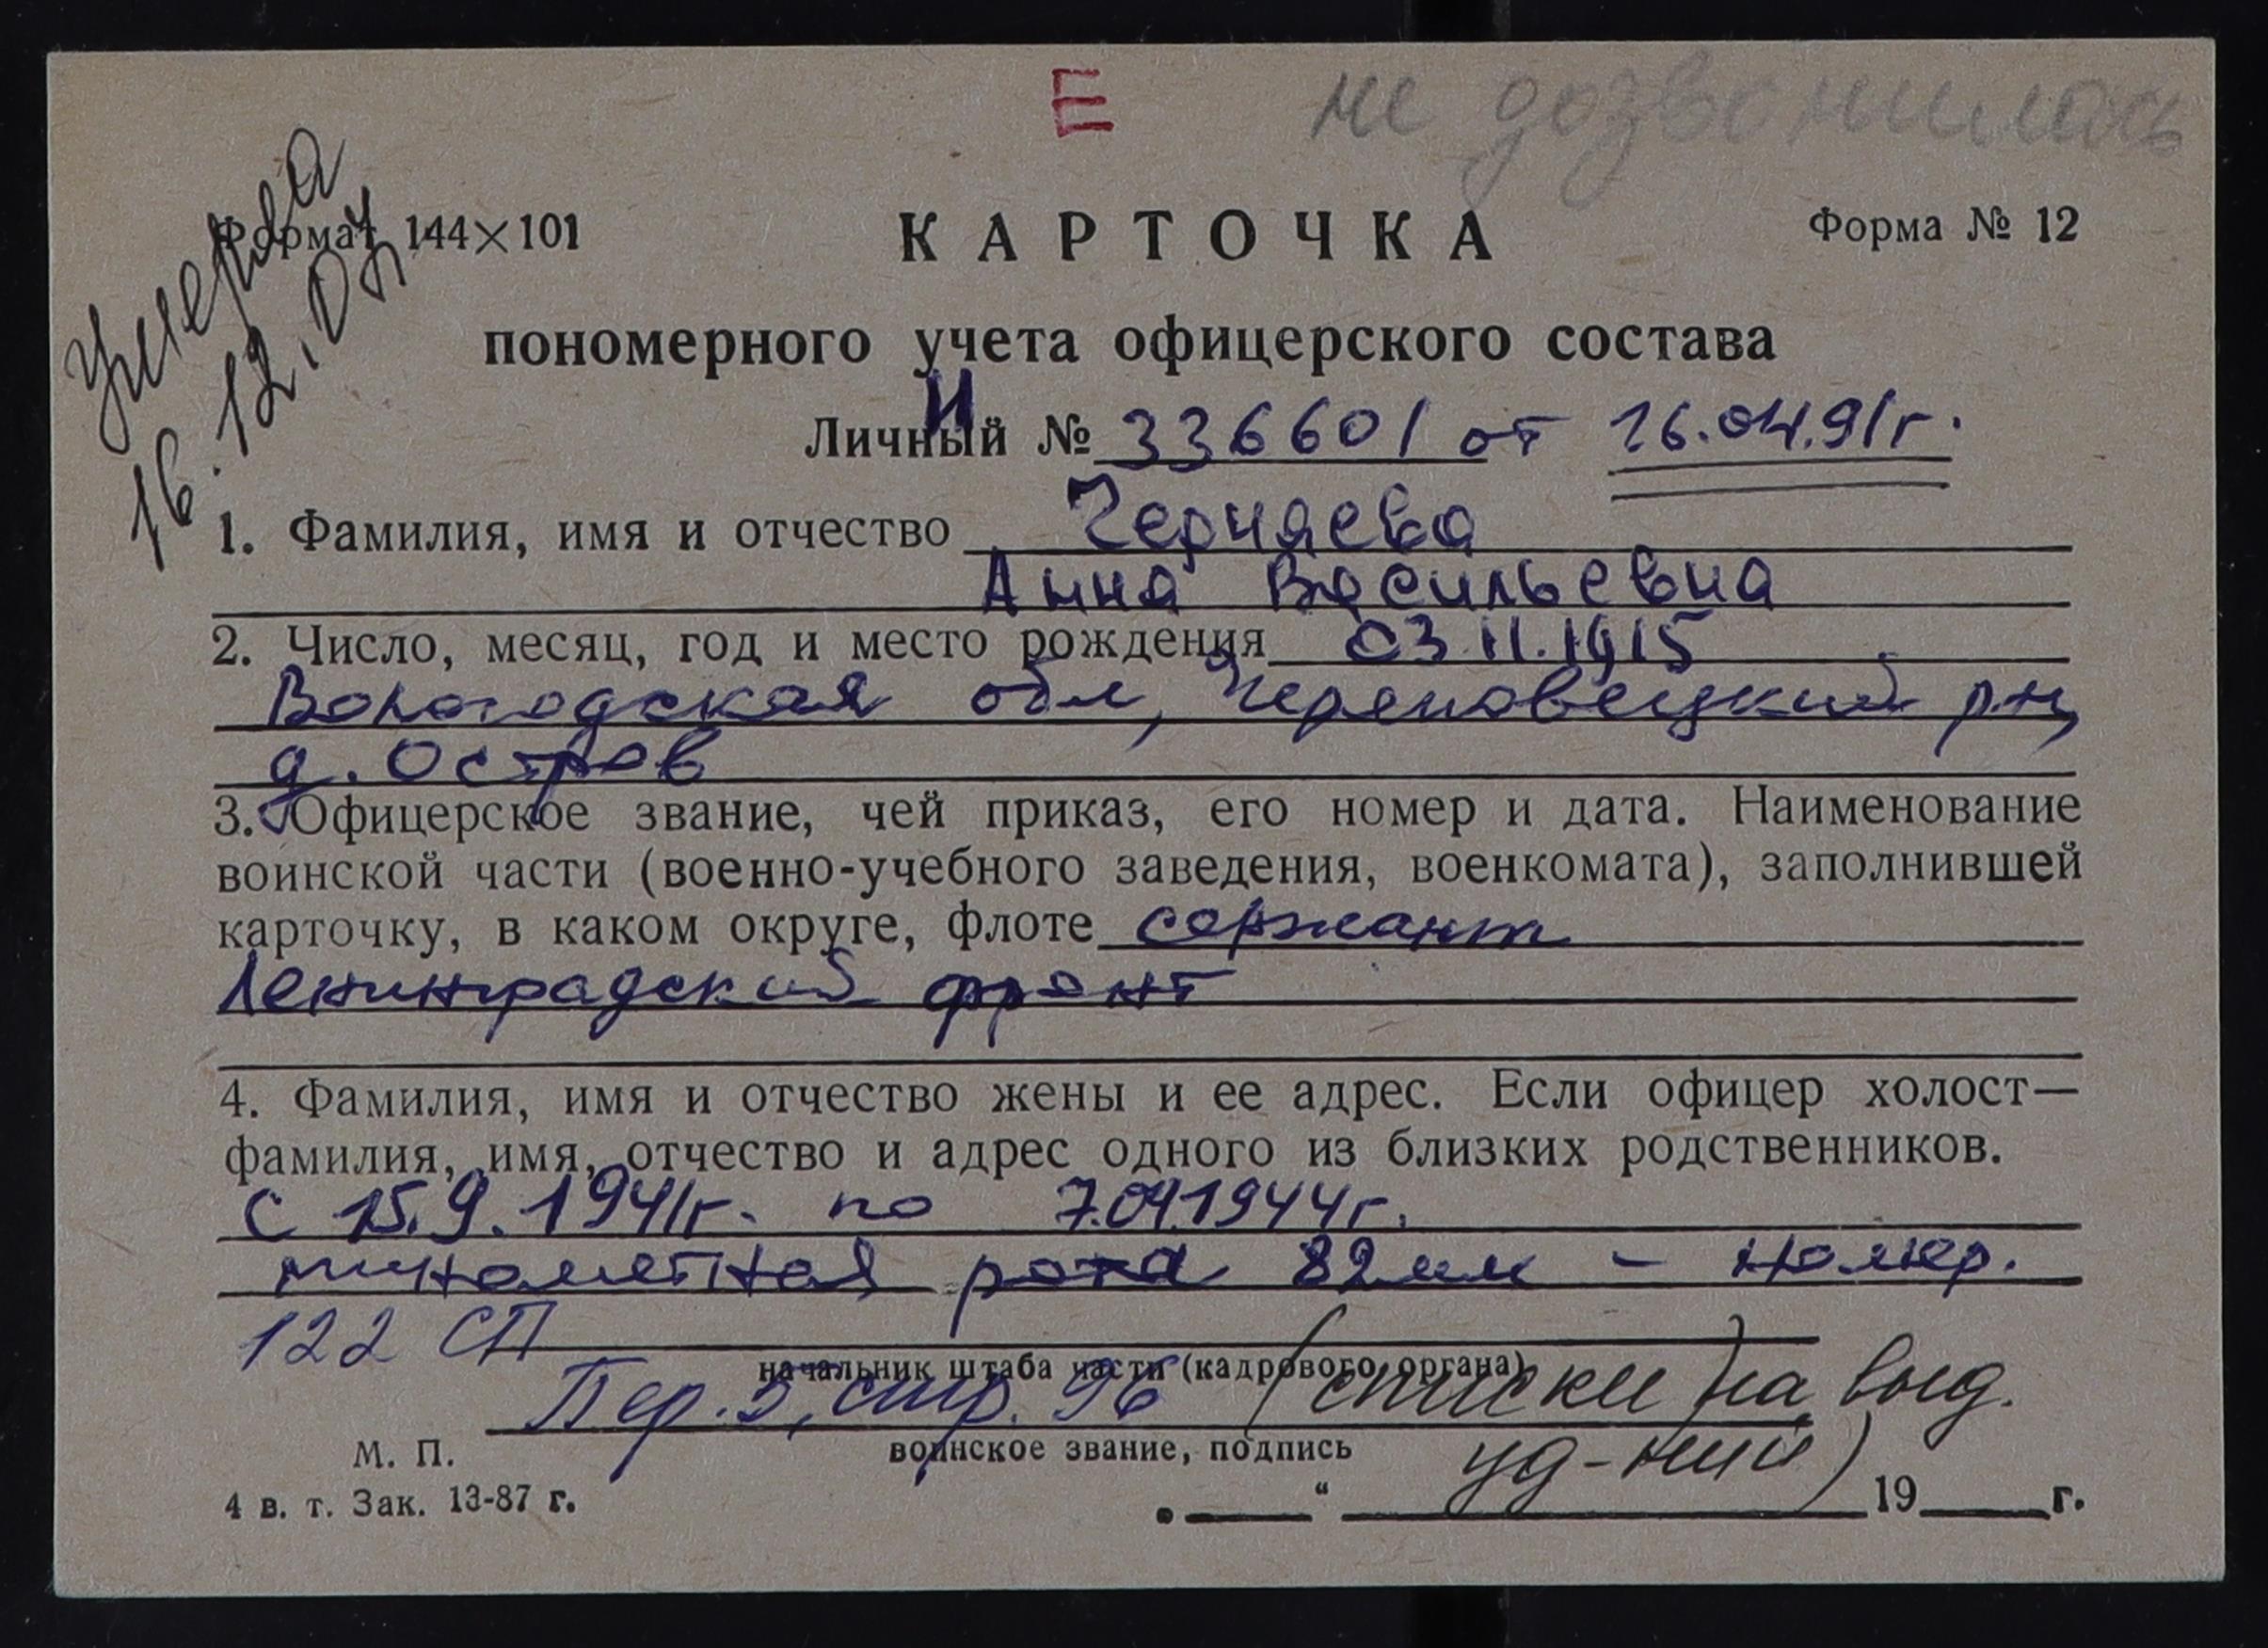 Е не дозвонилась
умерла
16.12.07
Формат 144×101 КАРТОЧКА Форма № 12
пономерного учета офицерского состава
И
Личный № 336601 от 26.04.91г.
1. Фамилия, имя и отчество Черняева
Анна Васильевна
2. Число, месяц, год и место рождения 03.11.1915
Вологодская обл, Череповецкий р-н,
д. Остров
3. Офицерское звание, чей приказ, его номер и дата. Наименование
воинской части (военно-учебного заведения, военкомата), заполнившей
карточку, в каком округе, флоте сержант
Ленинградский фронт
4. Фамилия, имя и отчество жены и ее адрес. Если офицер холост—
фамилия, имя, отчество и адрес одного из близких родственников.
с 15.9.1941г. по 7.04.1944г.
минометная рота 82мм – номер.
122 СП
начальник штаба части (кадрового органа)
Пер. 5, стр. 96 (списки на выд.
М. П. воинское звание, подпись уд-ний)
4 в. т. Зак. 13-87 г. „ “ 19 г.